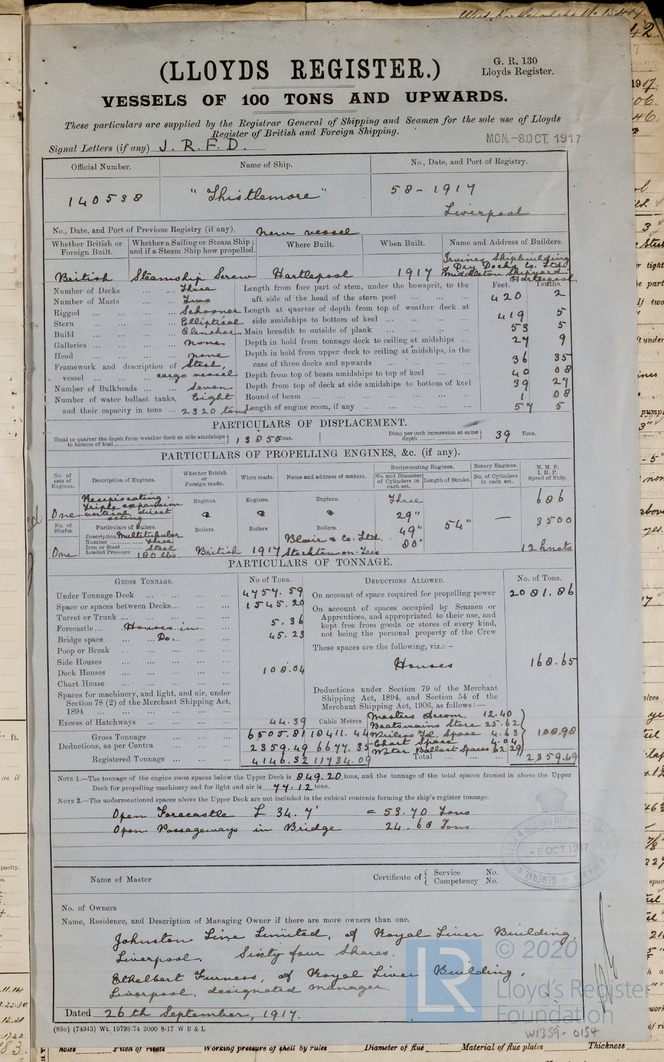 (LLOYDS REGISTER.)
G. R. 130
Lloyds Register.
VESSELS OF 100 TONS AND UPWARDS.
These particulars are supplied by the Registrar General of Shipping and Seamen for the sole use of Lloyds
Register of British and Foreign Shipping.
MON-8 OCT 1917
Signal Letters (if any) J. R. F. D.
Official Number. Name of Ship. No., Date, and Port of Registry.
140538 "Thistlemore" 58 - 1917
Liverpool
No., Date, and Port of Previous Registry (if any). New vessel
Whether British or Foreign Built. Whether a Sailing or Steam Ship; and if a Steam Ship how propelled. Where Built. When Built. Name and Address of Builders.
British Steamship Screw Hartlepool 1917 Irvines Shipbuilding & Dry Docks Co. Ltd. Middleton Shipyard Hartlepool
Number of Decks Three Length from fore part of stem, under the bowsprit, to the aft side of the head of the stern post Feet Tenths 420 2
Number of Masts Two
Rigged Schooner Length at quarter of depth from top of weather deck at side amidships to bottom of keel 419 5
Stern Elliptical
Build Clencher Main breadth to outside of plank 53 5
Galleries none Depth in hold from tonnage deck to ceiling at midships 27 9
Head none Depth in hold from upper deck to ceiling at midships, in the case of three decks and upwards 36 35
Framework and description of vessel Steel, cargo vessel Depth from top of beam amidships to top of keel 40 08
Number of Bulkheads Seven Depth from top of deck at side amidships to bottom of keel 39 27
Number of water ballast tanks, Eight Round of beam 1 08
and their capacity in tons 2320 tons Length of engine room, if any 57 5
PARTICULARS OF DISPLACEMENT.
Total to quarter the depth from weather deck at side amidships to bottom of keel 13850 tons. Ditto per inch immersion at same depth 39 Tons.
PARTICULARS OF PROPELLING ENGINES, &c. (if any).
No. of sets of Engines. Description of Engines. Whether British or Foreign made. When made. Name and address of makers. Reciprocating Engines. No. and Diameter of Cylinders in each set. Length of Stroke. Rotary Engines. No. of Cylinders in each set. N. H. P. I. H. P. Speed of Ship.
One Reciprocating. Triple expansion vertical direct acting Engines. Engines. Engines. Three 686
29"
No. of Shafts. Particulars of Boilers. Boilers Boilers Boilers 49" 54" — 3500
Description Multitubular
Number Three
Iron or Steel Steel
Loaded Pressure 180 lbs
One British 1917 Blair & Co. Ltd. Stockton-on-Tees 80" 12 knots
PARTICULARS OF TONNAGE.
GROSS TONNAGE. No of Tons. DEDUCTIONS ALLOWED. No. of Tons.
Under Tonnage Deck 4757.59 On account of space required for propelling power 2081.86
Space or spaces between Decks 1545.20 On account of spaces occupied by Seamen or Apprentices, and appropriated to their use, and kept free from goods or stores of every kind, not being the personal property of the Crew
Turret or Trunk
Forecastle Houses in 5.36
Bridge space Do. 45.23
Poop or Break These spaces are the following, viz.:—
Side Houses
Deck Houses 108.04 Houses 168.65
Chart House
Spaces for machinery, and light, and air, under Section 78 (2) of the Merchant Shipping Act, 1894
Deductions under Section 79 of the Merchant Shipping Act, 1894, and Section 54 of the Merchant Shipping Act, 1906, as follows:—
Excess of Hatchways 44.39 Cubic Metres Masters Accom. 12.40
Boatswains Store 25.62
Gross Tonnage 6505.81 18411.44 Wireless Tel. Space 4.63 108.98
Deductions, as per Contra 2359.49 6677.35 Chart Space 4.04
Water Ballast Spaces 62.29
Registered Tonnage 4146.32 11734.09 Total 2359.49
NOTE 1.—The tonnage of the engine room spaces below the Upper Deck is 849.20 tons, and the tonnage of the total spaces framed in above the Upper
Deck for propelling machinery and for light and air is 77.12 tons.
NOTE 2.—The undermentioned spaces above the Upper Deck are not included in the cubical contents forming the ship's register tonnage.
Open Forecastle L 34.7' = 53.70 Tons
Open Passageways in Bridge 24.68 Tons
-6 OCT 1917
Name of Master Certificate of { Service No.
Competency No.
No. of Owners
Name, Residence, and Description of Managing Owner if there are more owners than one.
Johnston Line Limited, of Royal Liver Building,
Liverpool. Sixty four Shares.
Ethelbert Furness, of Royal Liver Building,
Liverpool, designated manager.
Dated 26th September, 1917.
(83o) (74343) Wt. 19793/74 2000 8-17 W B & L
© 2020
LR Lloyd's Register
Foundation
W1359-0154
Pitch of rivets Working pressure of shell by rules Diameter of flue Material of flue plates Thickness